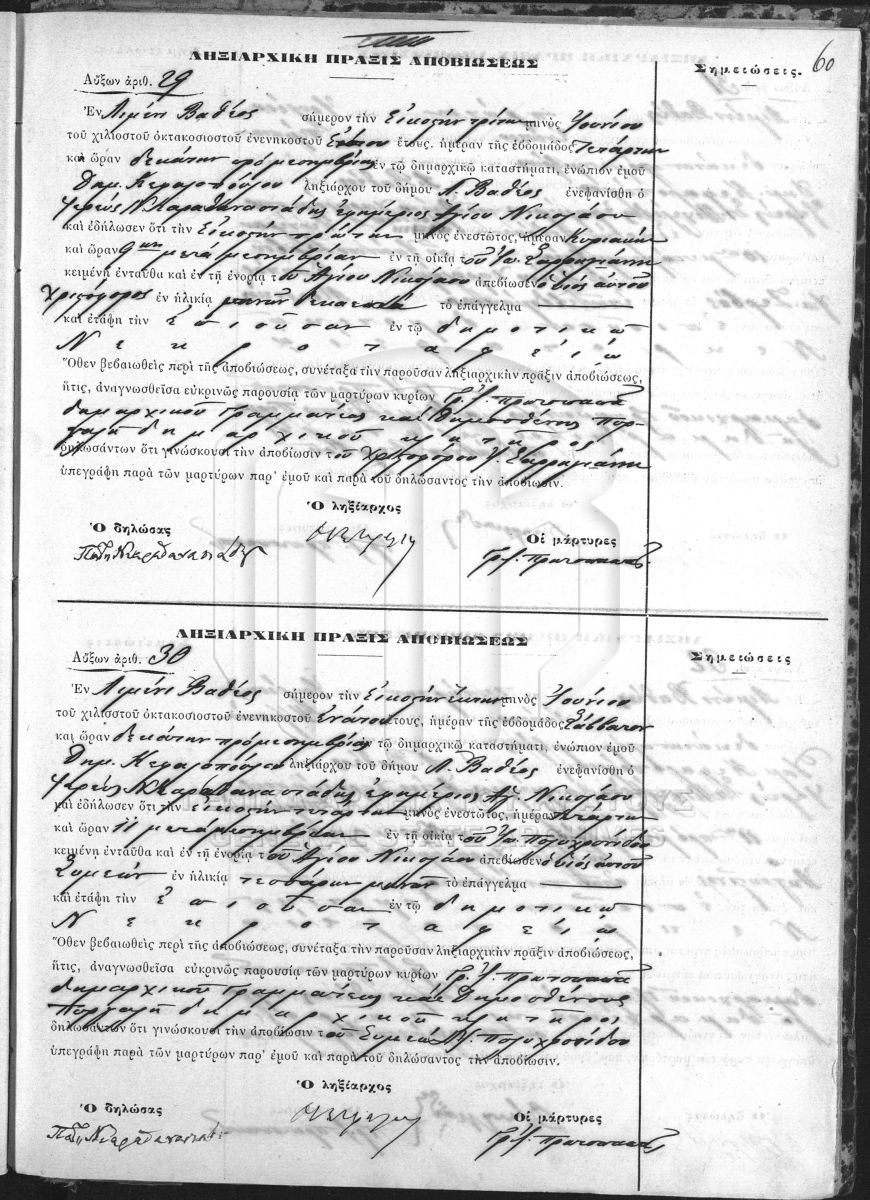 60
ΛΗΞΙΑΡΧΙΚΗ ΠΡΑΞΙΣ ΑΠΟΒΙΩΣΕΩΣ
Σημειώσεις.
Αὔξων ἀριθ. 29
Ἐν Λιμένι Βαθέος σήμερον τὴν Εἰκοστὴν τρίτην μηνὸς Ἰουνίου
τοῦ χιλιοστοῦ ὀκτακοσιοστοῦ ἐνενηκοστοῦ ἔτους. ἡμέραν τῆς ἑβδομάδος Τετάρτην
καὶ ὥραν δεκάτην πρὸ μεσημβρίας ἐν τῷ δημαρχικῷ καταστήματι, ἐνώπιον ἐμοῦ
Δημ. Κεφαλοπούλου ληξιάρχου τοῦ δήμου Λ. Βαθέος ἐνεφανίσθη ὁ
Ἱερεὺς Ν. Καραθανασιάδης ἐφημέριος Ἁγίου Νικολάου
καὶ ἐδήλωσεν ὅτι τὴν Εἰκοστὴν πρώτην μηνὸς ἐνεστῶτος, ἡμέραν Κυριακὴν
καὶ ὥραν 9ην μετὰ μεσημβρίαν ἐν τῇ οἰκίᾳ τοῦ Ἰω. Σαρρηγιάννη
κειμένῃ ἐνταῦθα καὶ ἐν τῇ ἐνορίᾳ τοῦ Ἁγίου Νικολάου ἀπεβίωσεν ὁ υἱὸς αὐτοῦ
ἐν ἡλικίᾳ μηνῶν τὸ ἐπάγγελμα
καὶ ἐτάφη τὴν ἐπιοῦσαν ἐν τῷ δημοτικῷ
Νεκροταφείῳ
Ὅθεν βεβαιωθεὶς περὶ τῆς ἀποβιώσεως, συνέταξα τὴν παροῦσαν ληξιαρχικὴν πρᾶξιν ἀποβιώσεως,
ἥτις, ἀναγνωσθεῖσα εὐκρινῶς παρουσίᾳ τῶν μαρτύρων κυρίων Γρ. Ι. Πρωτοπαπᾶ
δημαρχικοῦ Γραμματέως καὶ Δημοσθένους
δημαρχικοῦ κλητῆρος
δηλωσάντων ὅτι γινώσκουσι τὴν ἀποβίωσιν τοῦ Ι. Σαρρηγιάννη
ὑπεγράφη παρὰ τῶν μαρτύρων παρ' ἐμοῦ καὶ παρὰ τοῦ δηλώσαντος τὴν ἀποβίωσιν.
Ὁ ληξίαρχος
Ὁ δηλώσας
Οἱ μάρτυρες
Γρ. Ι. Πρωτοπαπᾶς
ΛΗΞΙΑΡΧΙΚΗ ΠΡΑΞΙΣ ΑΠΟΒΙΩΣΕΩΣ
Σημειώσεις
Αὔξων ἀριθ. 30
Ἐν Λιμένι Βαθέος σήμερον τὴν Εἰκοστὴν ἕκτην μηνὸς Ἰουνίου
τοῦ χιλιοστοῦ ὀκτακοσιοστοῦ ἐνενηκοστοῦ Ἐνάτου ἔτους, ἡμέραν τῆς ἑβδομάδος Σάββατον
καὶ ὥραν δεκάτην πρὸ μεσημβρίαν ἐν τῷ δημαρχικῷ καταστήματι, ἐνώπιον ἐμοῦ
Δημ. Κεφαλοπούλου ληξιάρχου τοῦ δήμου Λ. Βαθέος ἐνεφανίσθη ὁ
Ἱερεὺς Ν. Καραθανασιάδης ἐφημέριος Ἁγ. Νικολάου
καὶ ἐδήλωσεν ὅτι τὴν εἰκοστὴν τετάρτην μηνὸς ἐνεστῶτος, ἡμέραν Τετάρτην
καὶ ὥραν 11 μετὰ μεσημβρίαν ἐν τῇ οἰκίᾳ τοῦ Ἰω. Πολυχρονίδου
κειμένῃ ἐνταῦθα καὶ ἐν τῇ ἐνορίᾳ τοῦ Ἁγίου Νικολάου ἀπεβίωσεν ὁ υἱὸς αὐτοῦ
Συμεὼν ἐν ἡλικίᾳ τεσσάρων μηνῶν τὸ ἐπάγγελμα
καὶ ἐτάφη τὴν ἐπιοῦσαν ἐν τῷ δημοτικῷ
Νεκροταφείῳ
Ὅθεν βεβαιωθεὶς περὶ τῆς ἀποβιώσεως, συνέταξα τὴν παροῦσαν ληξιαρχικὴν πρᾶξιν ἀποβιώσεως,
ἥτις, ἀναγνωσθεῖσα εὐκρινῶς παρουσίᾳ τῶν μαρτύρων κυρίων Γρ. Ι. Πρωτοπαπᾶ
δημαρχικοῦ Γραμματέως καὶ Δημοσθένους
δημαρχικοῦ κλητῆρος
δηλωσάντων ὅτι γινώσκουσι τὴν ἀποβίωσιν τοῦ Συμεὼν Ι. Πολυχρονίδου
ὑπεγράφη παρὰ τῶν μαρτύρων παρ' ἐμοῦ καὶ παρὰ τοῦ δηλώσαντος τὴν ἀποβίωσιν.
Ὁ ληξίαρχος
Ὁ δηλώσας
Οἱ μάρτυρες
Γρ. Ι. Πρωτοπαπᾶς